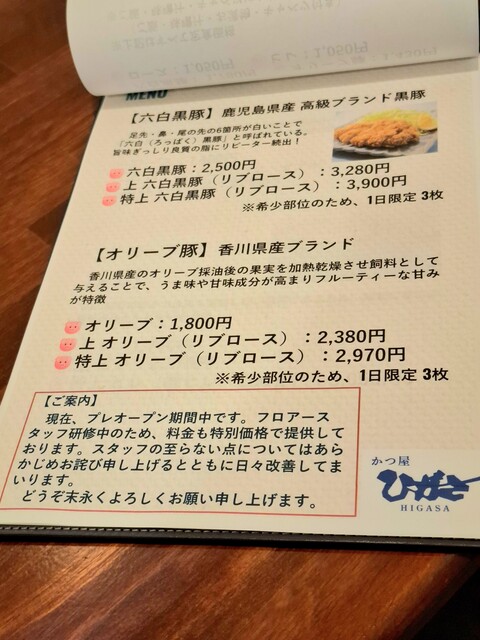 MENU
【六白黒豚】鹿児島県産 高級ブランド黒豚
足先・鼻・尾の先の6箇所が白いことで
『六白(ろっぱく)黒豚』と呼ばれている。
旨味ぎっしり良質の脂にリピーター続出!
六白黒豚:2,500円
上 六白黒豚(リブロース):3,280円
特上 六白黒豚(リブロース):3,900円
※希少部位のため、1日限定 3枚
【オリーブ豚】香川県産ブランド
香川県産のオリーブ採油後の果実を加熱乾燥させ飼料として
与えることで、うま味や甘味成分が高まりフルーティーな甘み
が特徴
オリーブ:1,800円
上 オリーブ(リブロース):2,380円
特上 オリーブ(リブロース):2,970円
※希少部位のため、1日限定 3枚
【ご案内】
現在、プレオープン期間中です。フロアース
タッフ研修中のため、料金も特別価格で提供して
おります。スタッフの至らない点についてはあら
かじめお詫び申し上げるとともに日々改善してま
いります。
どうぞ末永くよろしくお願い申し上げます。
かつ屋
ひがさ
HIGASA